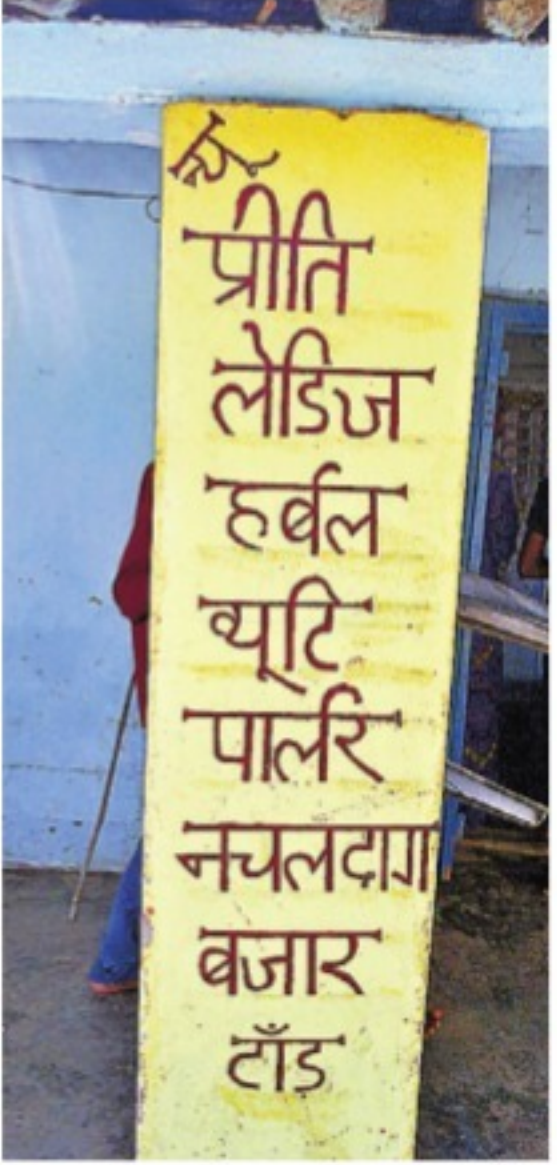 प्रीति
लेडिज
हर्बल
ब्यूटि
पार्लर
नचलदाग
बजार
टाँड़